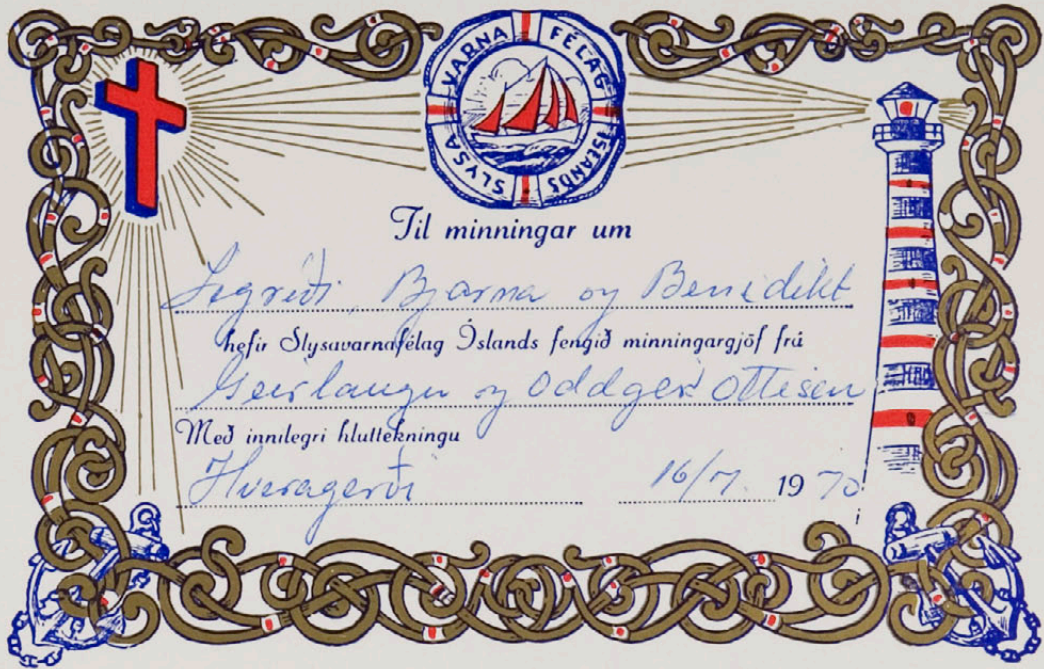 SLYSA VARNA FÉLAG ÍSLANDS
Til minningar um
Sigríði, Bjarna og Benidikt
hefir Slysavarnafélag Íslands fengið minningargjöf frá
Geirlaugu og Oddgeir Ottesen
Með innilegri hluttekningu
Hveragerði 16/7. 1970